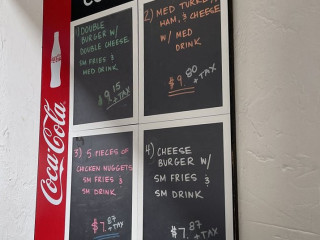 Coca-Cola
1) DOUBLE
BURGER W/
DOUBLE CHEESE
SM FRIES &
MED DRINK
$9.15
+TAX
2) MED TURKEY,
HAM, & CHEESE
W/ MED
DRINK
$9.80
+TAX
3) 5 PIECES OF
CHICKEN NUGGETS
SM FRIES &
SM DRINK
$7.87
+TAX
4) CHEESE
BURGER W/
SM FRIES &
SM DRINK
$7.87
+TAX